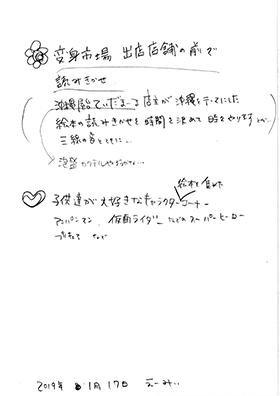 変身市場 出店店舗の前で
読みきかせ
沖縄 ていだまーる 店主が沖縄をテーマにした
絵本の読みきかせを時間を決めて時々やりますとか…
三線の音とともに…
泡盛カクテルやおかし…
絵本を集めた
子供達が大好きなキャラクターコーナー
アンパンマン、仮面ライダー などのスーパーヒーロー
プリキュア など
2019年 1月17日